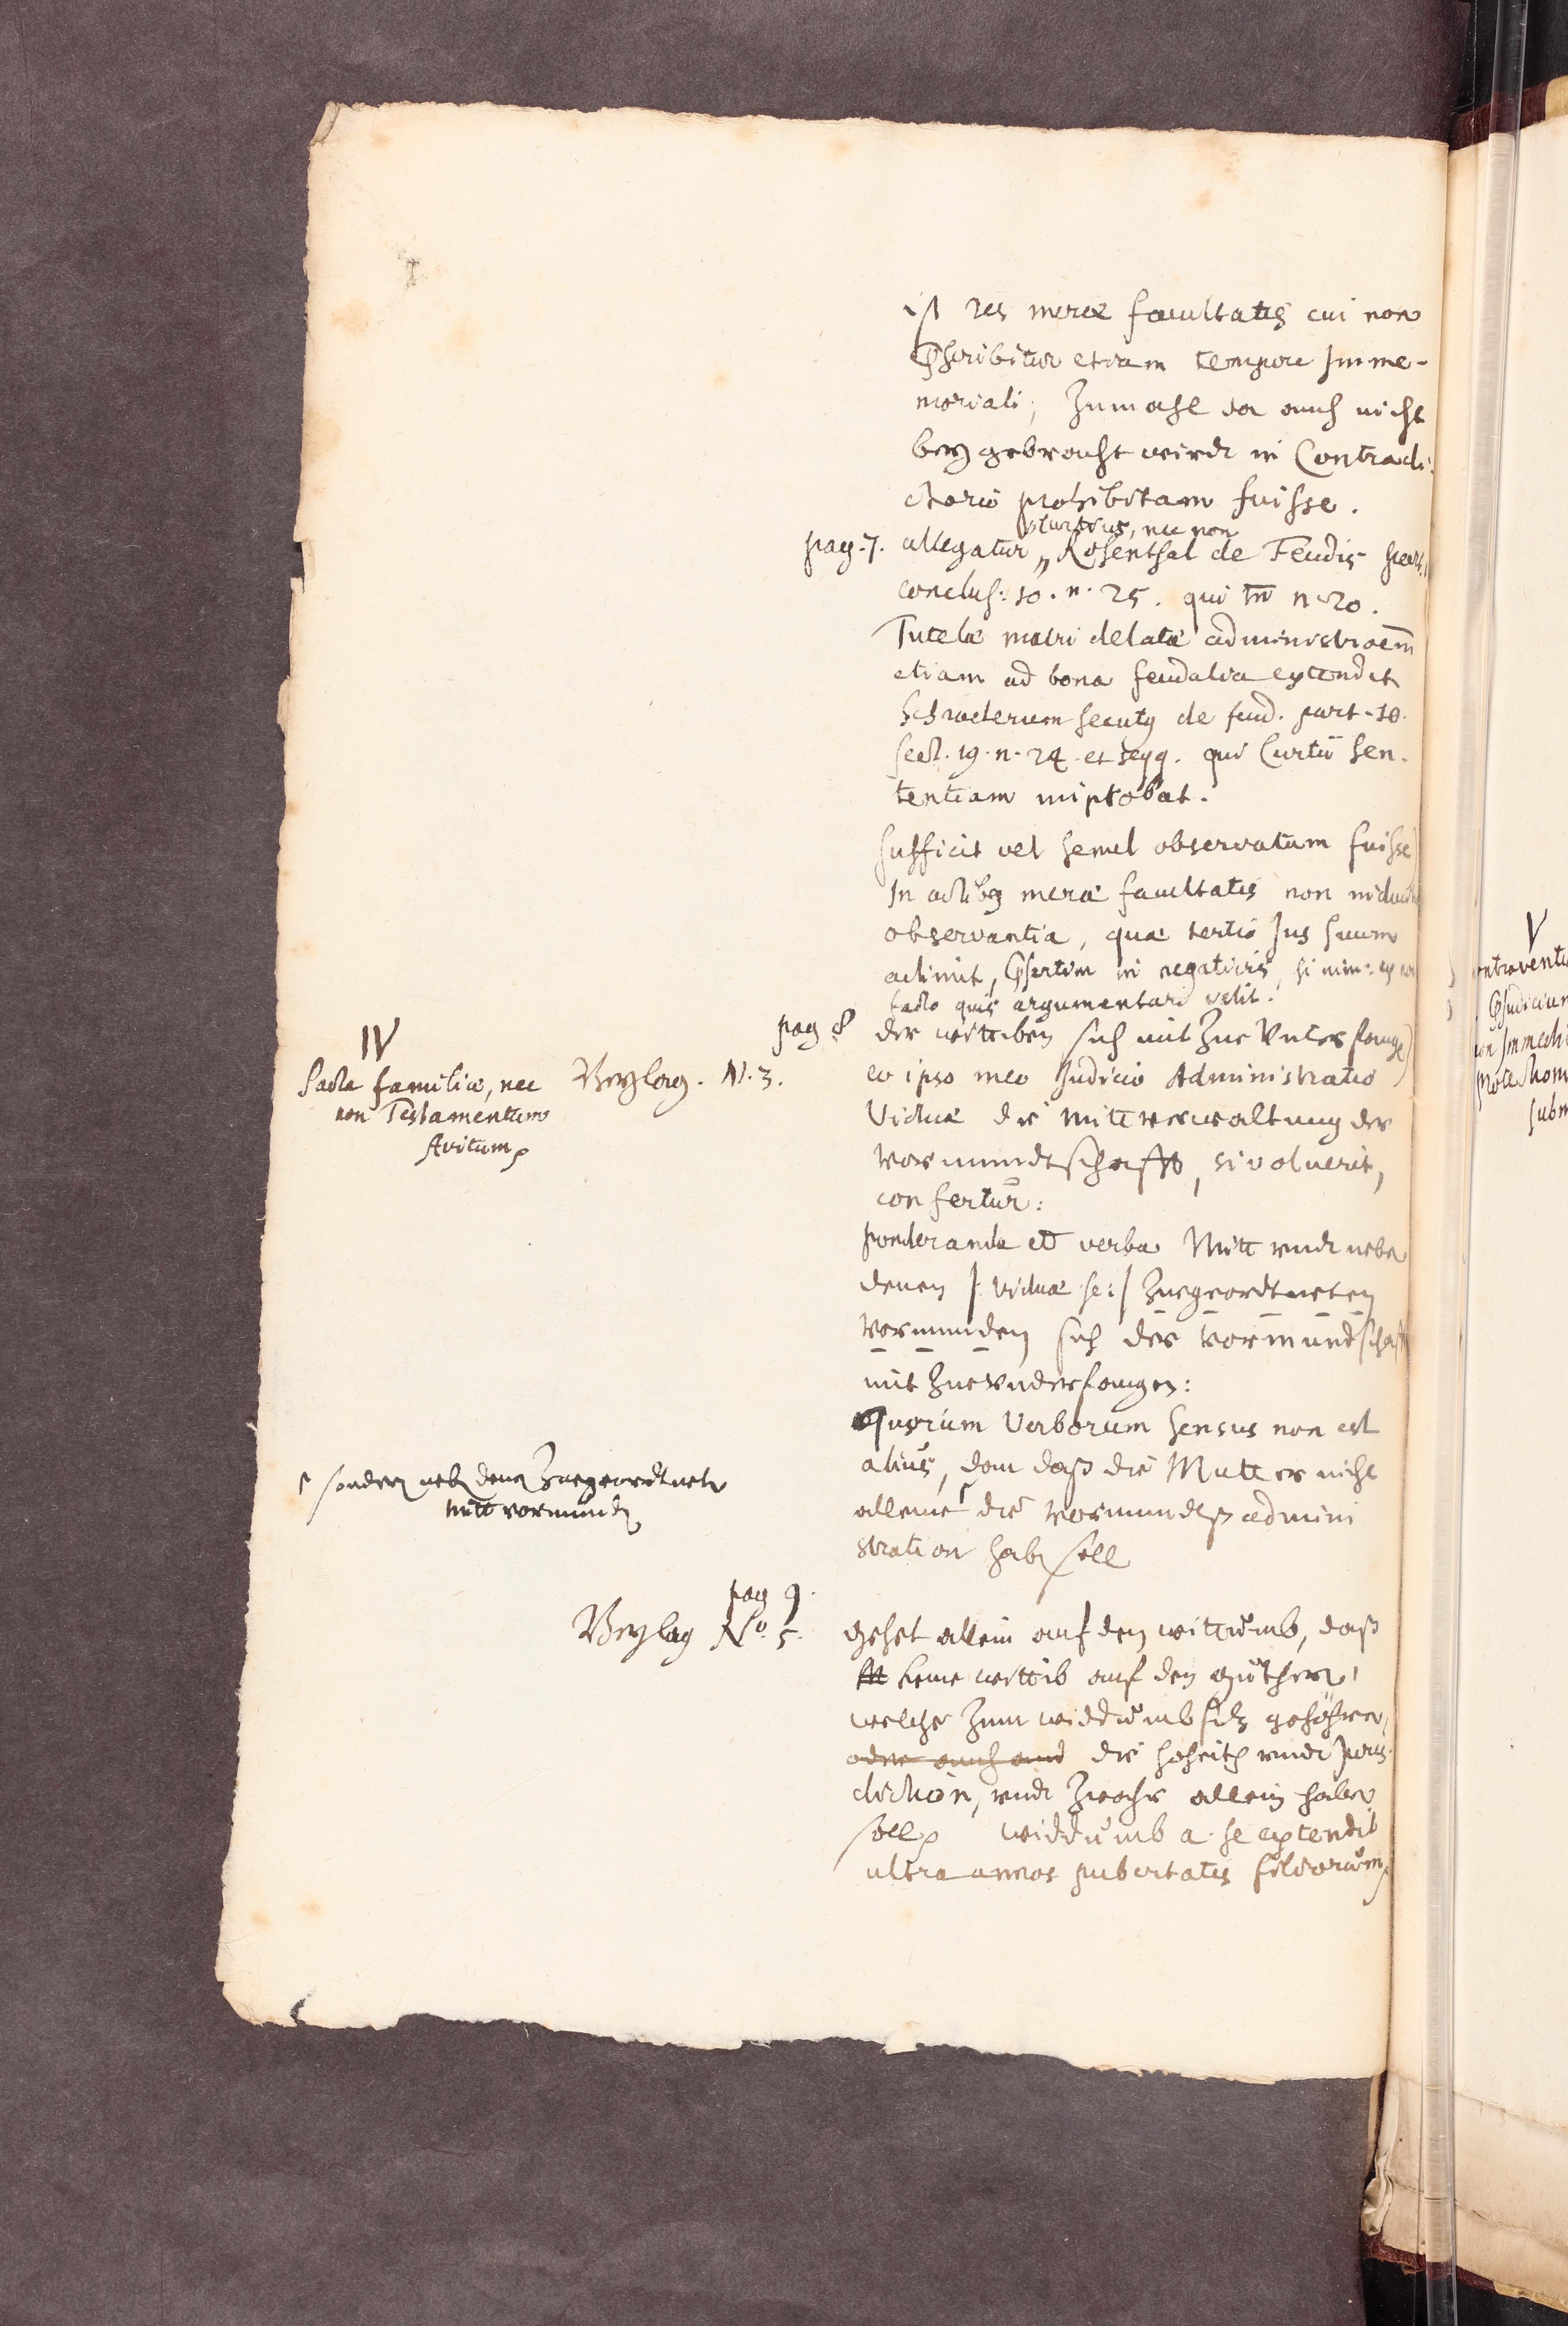 ist res meræ facultatis cui non
Præscribitur etiam tempore Imme-
moriali, Zumahl da auch nicht
beygebracht wirdt in Contradi-
ctorio prohibitam fuisse.
Curtius, nec non
pag. 7. allegatur „ Rosenthal de Feudis part.
conclus: 10. n. 25. qui tn̄ n. 20.
Tutelæ matri delatæ administraōem
etiam ad bona feudalia extendit
Schraderum secutus de feud. part. 10.
sect. 19. n. 24. et seqq. qui Curtii sen-
tentiam improbat.
sufficit vel semel observatum fuisse
In actibus meræ facultatis non
observantia, quæ tertio Jus suum
adimit, Præsertim in negativis, si nim: ex non
facto quis argumentari velit.
IV
Pacta familiæ, nec
non Testamentum
Avitum
Beylag. N. 3.
pag 8
der wittiben sich mit Zue Unterfange
eo ipso meo Judicio Administratio
Viduæ die mittverwaltung der
Vormundtschafft, si voluerit,
confertur:
ponderanda et verba Mitt vndt neben
denen /: viduæ sc: / Zuegeordtneten
Vormunden sich der Vormundtschafft
mit Zue Vnderfangen:
Quorum Verborum sensus non est
alius, dan daß die Mutter nicht
alleine die Vormundtß admini
stration haben soll
sondern neben denen Zuegeordtneten
mitt vormunden
pag 9.
Beylag No. 5.
gehet allein auf den wittumb, daß
keine wittib auf den güthern,
welche Zum widdumbsitz gehöhren,
oder auch die hoheith vndt Juris-
diction, vndt Zwahr allein haben
soll widdumb a. se extendit
ultra annos pubertatis filiorum
V